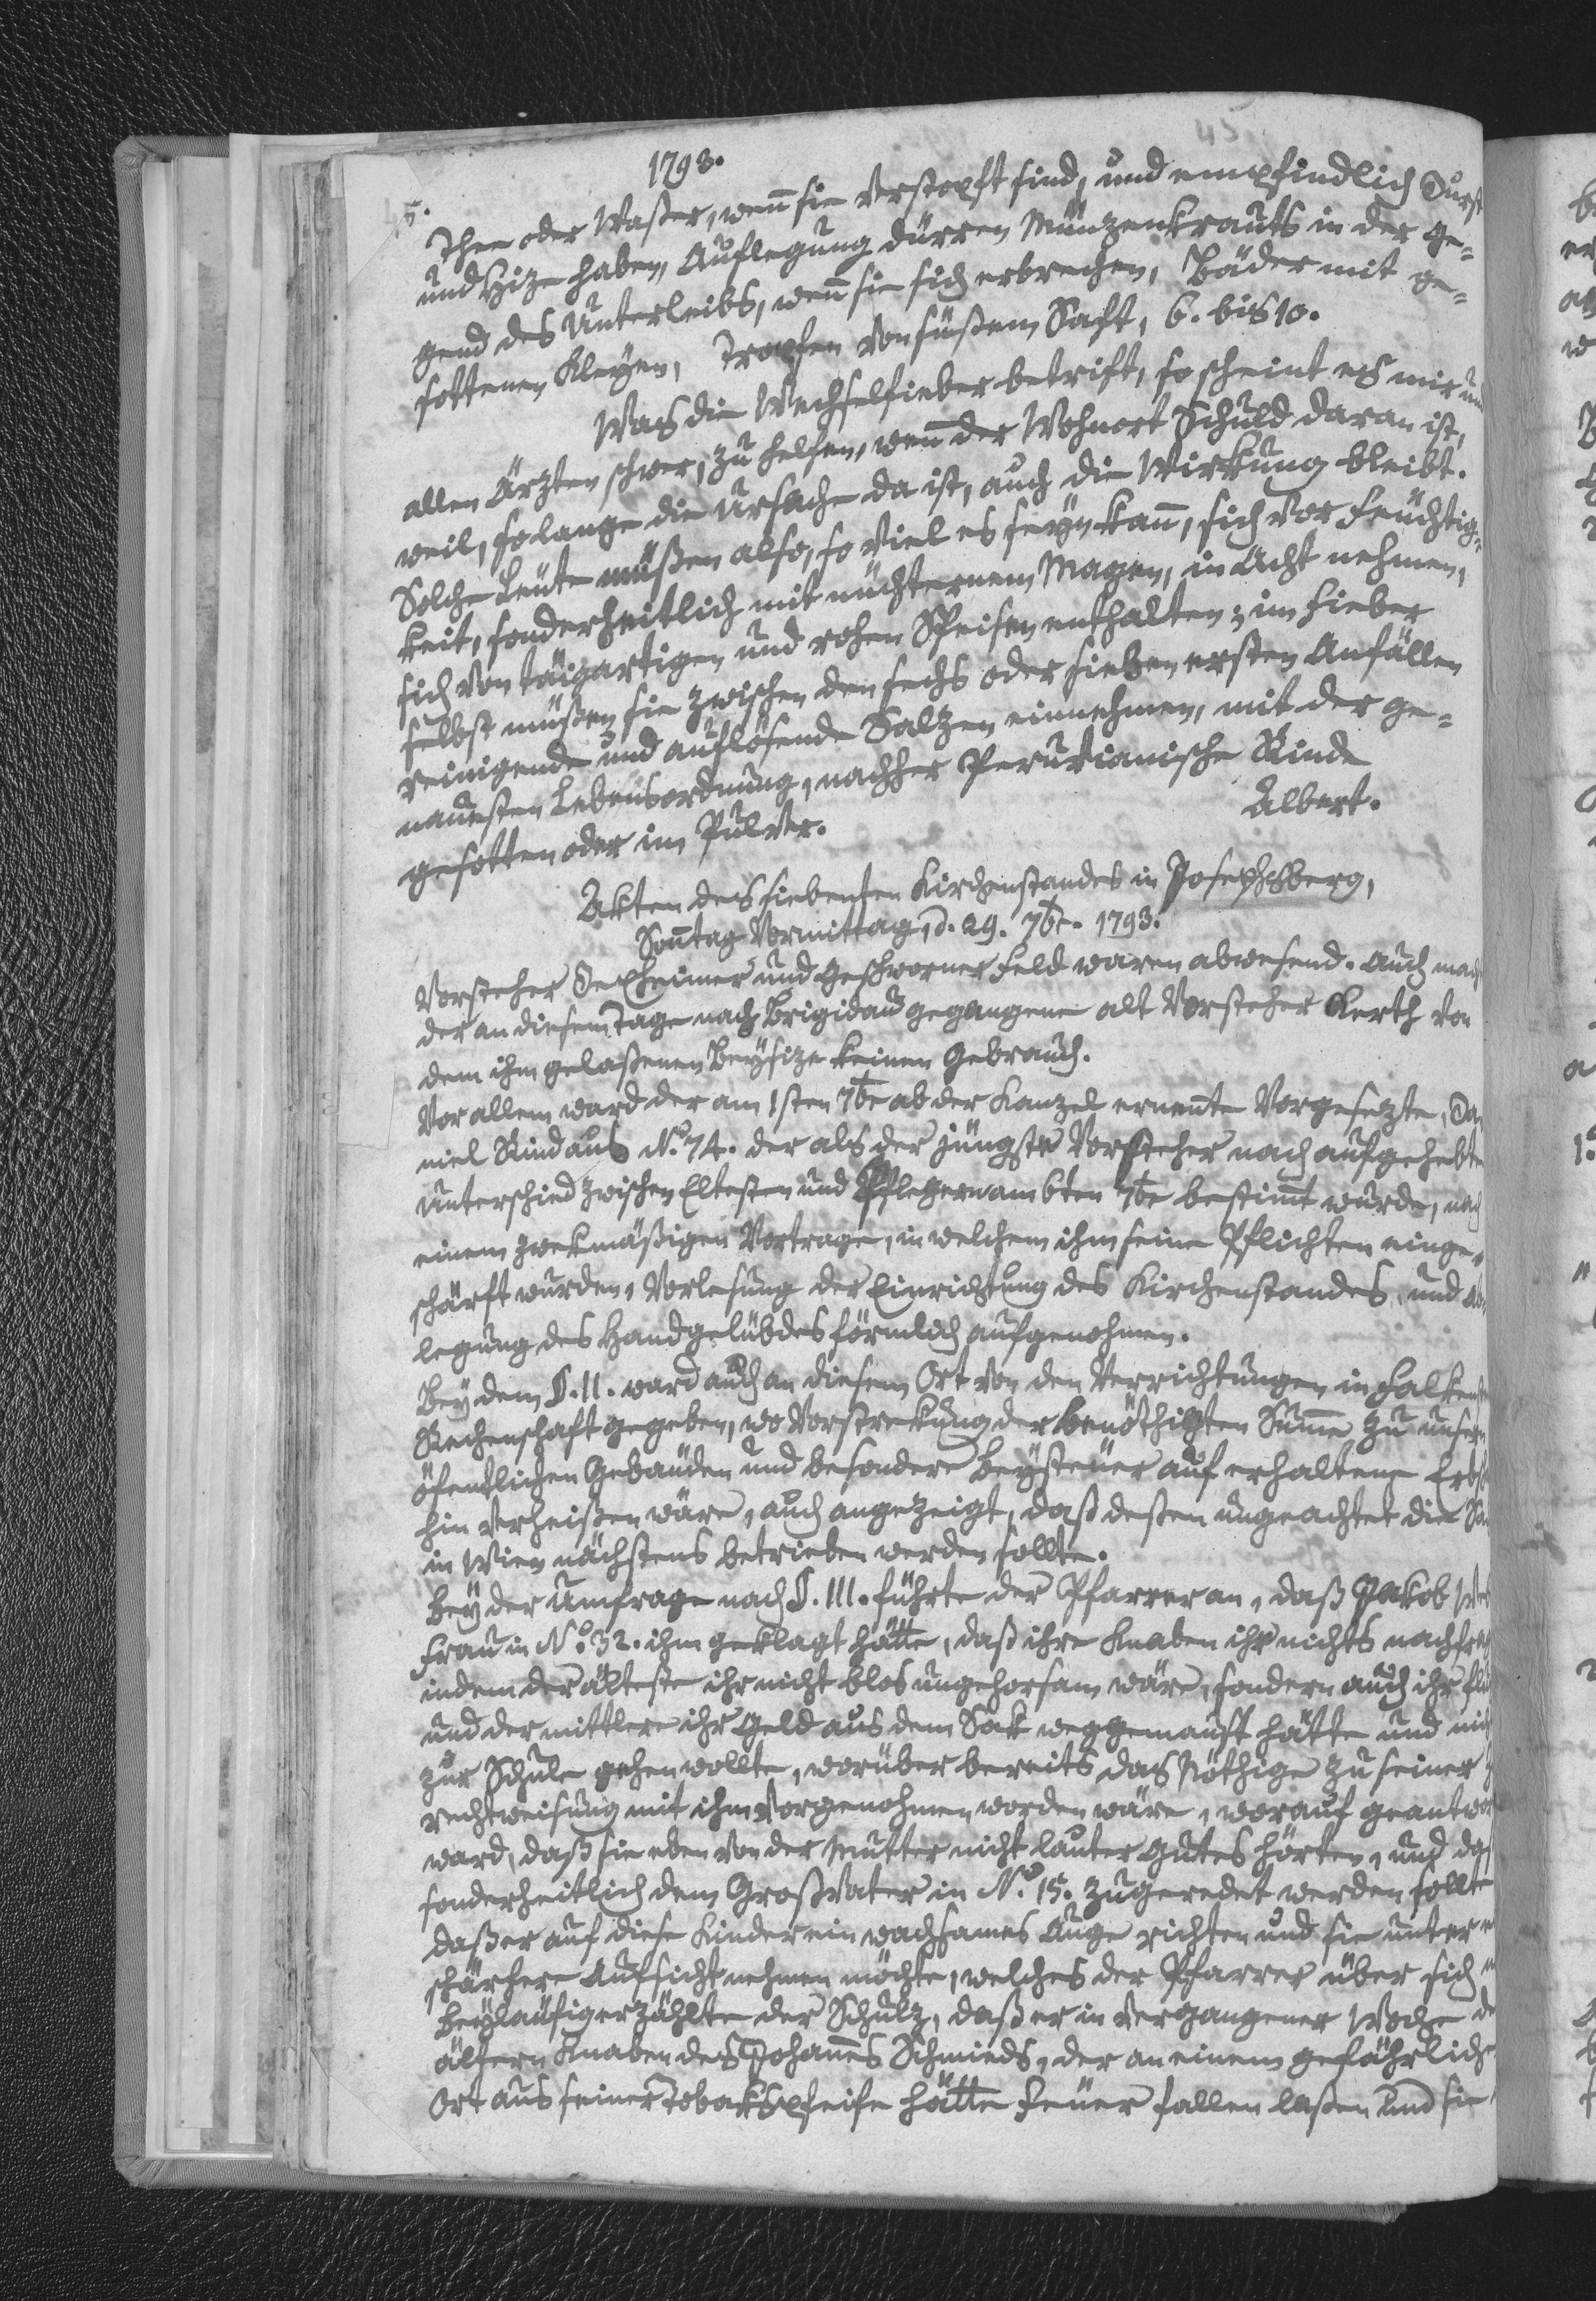 45
1793.
5.
Thee oder Waßer, wen̄ sie verstopft sind, und empfindlich Durst
und Hize haben, Auflegung dürren Münzenkrauts in der Ge-
gend des Unterleibs, wen̄ sie sich erbrechen, Bäder mit ge-
sottenen Kleyen, Tropfen von süßem Saft, 6. bis 10.
Was die Wechselfieber betrift, so scheint es mir und
allen Ärzten schwer, zu helfen, wen̄ der Wohnort Schuld daran ist,
weil, so lange die Ursache da ist, auch die Wirkung bleibt.
Solche Leute müßen also, so viel es seyn kan̄, sich vor Feuchtig-
keit, sonderheitlich mit nüchternem Magen, in Acht nehmen,
sich von taigartigen und rohen Speisen enthalten; im Fieber
selbst müßen sie zwischen den sechs oder sieben ersten Anfällen
reinigende und auflösende Salzen einnehmen, mit der ge-
nauesten Lebensordnung, nachher Peruvianische Rinde
gesotten oder im Pulver.
Albert.
Akten des siebenten Kirchenstandes in Josephsberg,
Son̄tag Vormittag, d. 29. 7br. 1793.
Vorsteher Dexheimer und Geschworner Feld waren abwesend. Auch mach
der an diesem Tage nach Brigidau gegangene alt Vorsteher Kerth von
dem ihm gelaßenen Beysize keinen Gebrauch.
Vor allem ward der am 1sten 7br ab der Kanzel ernen̄te Vorgesetzte, Da-
niel Rind aus No. 74. der als der jüngste Vorsteher nach aufgehebten
Unterschied zwischen Eltesten und Pflegern am 6ten 7br bestim̄t wurde, nach
einem zwekmäßigen Vortrage, in welchem ihm seine Pflichten einge-
schärft wurden, Verlesung der Einrichtung des Kirchenstandes, und ab-
legung des Handgelübdes förmlich aufgenohmen.
Bey dem §. II. ward auch an diesem Ort von den Verrichtungen in Falkenst
Rechenschaft gegeben, wo Vorstrekung der benöthigten Sum̄e zu unsern
öfentlichen Gebäuden und besondere Beysteuer auf erhaltene
hin verheißen wäre, auch angezeigt, daß deßen ungeachtet die
in Wien nächstens betrieben werden sollte.
Bey der Umfrage nach §. III. führte der Pfarrer an, daß Jakob
Frau in No. 32. ihm geklagt hätte, daß ihre Knaben ihr nichts nachfrag
indem der älteste ihr nicht blos ungehorsam wäre, sondern auch ihr
und der mittlere ihr Geld aus dem Sak weggemaust hätte und nich
zur Schule gehen wollte, worüber bereits das Nöthige zu seiner
rechtweisung mit ihm vorgenohmen worden wäre, worauf geantwor
ward, daß sie eben von der Mutter nicht lauter Gutes hörten, und daß
sonderheitlich dem Großvater in No. 15. zugeredet werden sollte
daß er auf diese Kinder ein wachsames Auge richten und sie unter
schärfere Aufsicht nehmen möchte, welches der Pfarrer über sich
Beyläufig erzählte der Schulz, daß er in vergangener Woche de
ältern Knaben des Johan̄es Schmieds, der an einem gefährliche
Ort aus seiner Tobakspfeife hätte Feuer fallen laßen und sie